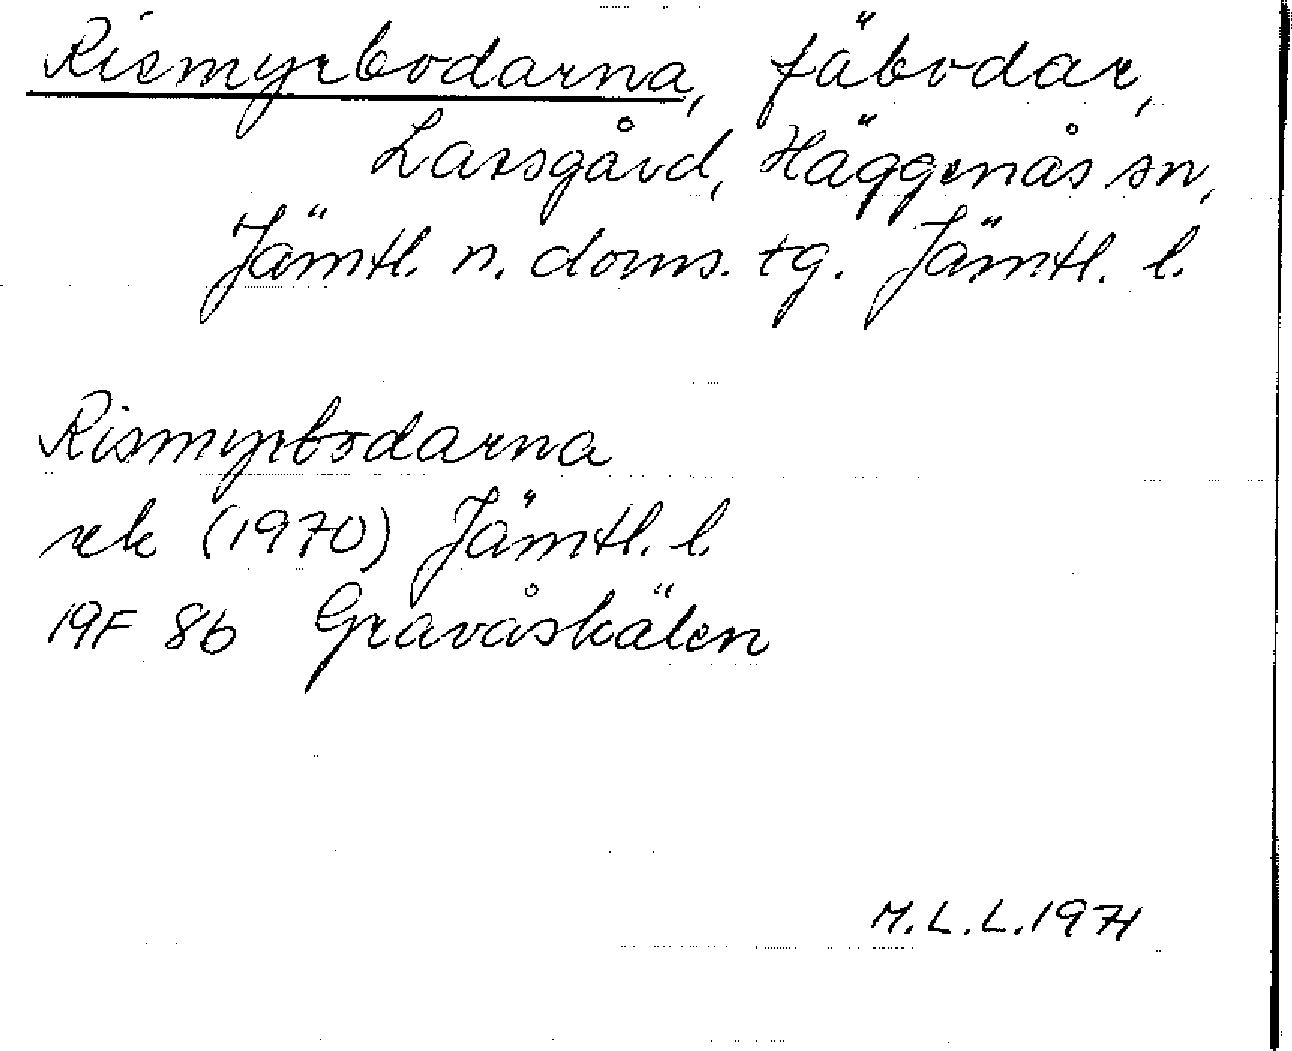 Rismyrbodarna, fäbodar,
Larsgård, Häggenås sn,
Jämtl. n. doms. tg. Jämtl. l.
Rismyrbodarna
rek (1970) Jämtl. l.
19F 8b Gravåskälen
M.L.L. 1971